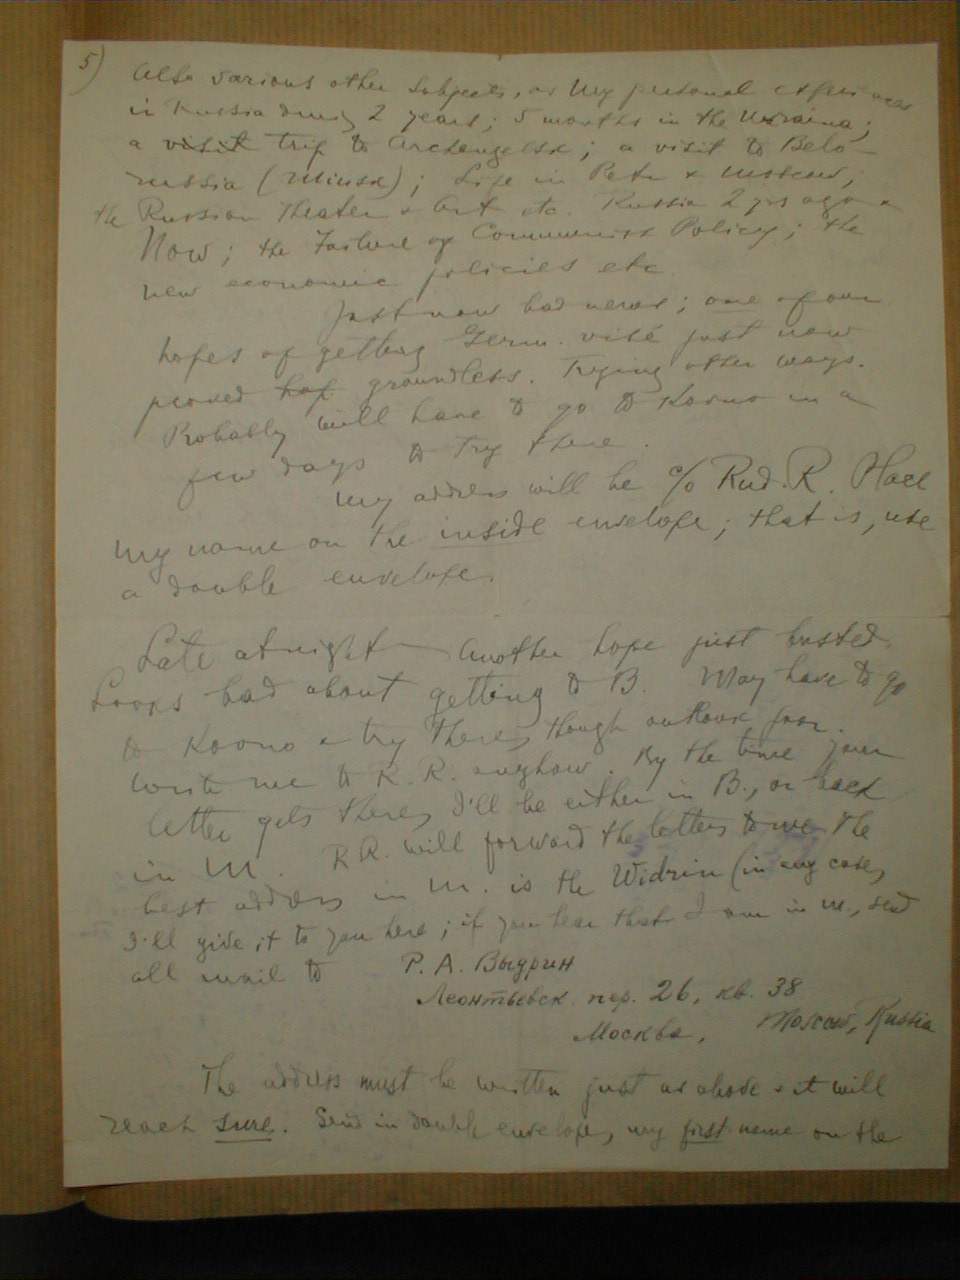 5)
Also various other subjects, as My personal experiences
in Russia during 2 years; 5 months in the Ukraina;
a visit trip to Archengelsk; a visit to Belo-
russia (Minsk); Life in Petr & Moscow;
the Russian Theater & Art etc. Russia 2 yrs ago &
Now; the Failure of Communist Policy; the
new economic policies etc
Just now bad news; one of our
hopes of getting Germ. visé just now
proved groundless. Trying other ways.
Probably will have to go to Kovno in a
few days to try there.
My address will be c/o Rud. R.
my name on the inside envelope; that is, use
a double envelope.
Late at night — Another hope just busted.
Looks bad about getting to B. May have to go
to Kovno & try there, though outlook poor.
Write me to R. R. anyhow. By the time your
letter gets there, I'll be either in B., or back
in M. R.R. will forward the letters to me. The
best address in M. is the Widrin (in any case,
I'll give it to you here; if you hear that I am in M., send
all mail to Р. А. Выдрин
Леонтьевск. пер. 26, кв. 38
Москва, Moscow, Russia
The address must be written just as above & it will
reach sure. Send in double envelope, my first name on the